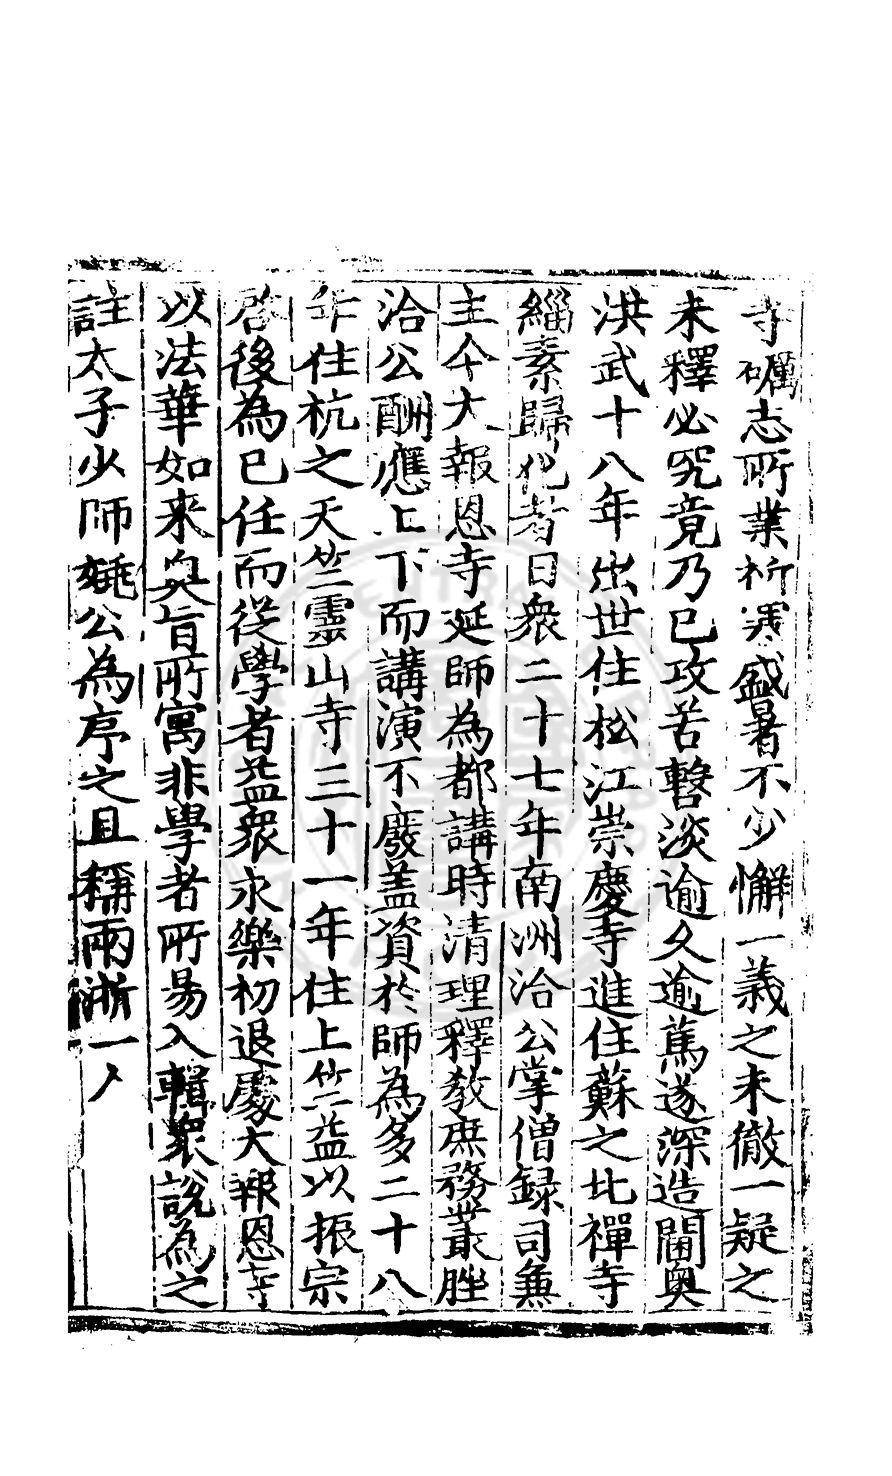 寺礪志所業祈寒盛暑不少懈一義之未徹一疑之
未釋必究竟乃已攻苦㗖淡逾久逾篤遂深造閫奥
洪武十八年出世住松江崇慶寺進住蘇之北禪寺
緇素歸化者日衆二十七年南洲洽公掌僧録司兼
主今大報恩寺延師為都講時清理釋教庶務叢脞
洽公酬應上下而講演不廢盖資於師為多二十八
年住杭之天竺靈山寺三十一年住上竺益以振宗
啓後為已任而從學者益衆永樂初退處大報恩寺
以法華如来奥旨所寓非學者所易入輯衆説為之
註太子少師姚公為序之且稱兩浙一人